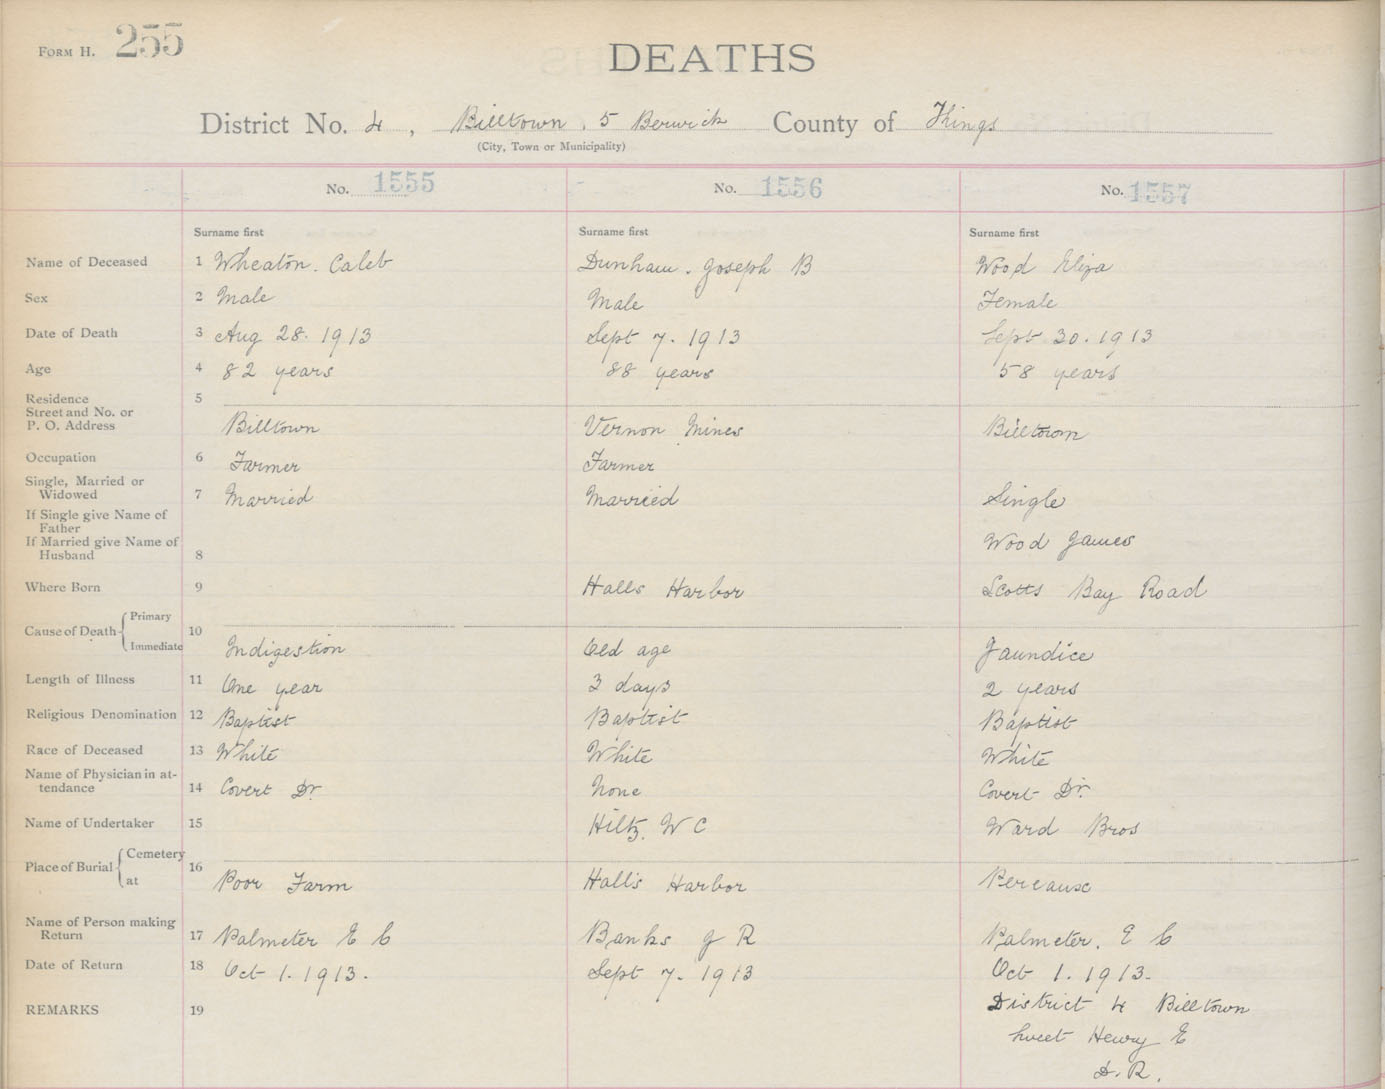 FORM H. 255
DEATHS
District No. 4, Billtown. 5 Berwick County of Kings
(City, Town or Municipality)
No. 1555 No. 1556 No. 1557
Surname first Surname first Surname first
Name of Deceased 1 Wheaton. Caleb Dunham. Joseph B Wood Eliza
Sex 2 Male Male Female
Date of Death 3 Aug 28. 1913 Sept 7. 1913 Sept 30. 1913
Age 4 82 years 88 years 58 years
Residence 5
Street and No. or
P. O. Address Billtown Vernon Mines Billtown
Occupation 6 Farmer Farmer
Single, Married or
Widowed 7 Married Married Single
If Single give Name of
Father
If Married give Name of Wood James
Husband 8
Where Born 9 Halls Harbor Scotts Bay Road
Primary
Cause of Death 10
Immediate Indigestion Old age Jaundice
Length of Illness 11 One year 3 days 2 years
Religious Denomination 12 Baptist Baptist Baptist
Race of Deceased 13 White White White
Name of Physician in at-
tendance 14 Covert Dr. None Covert Dr.
Name of Undertaker 15 Hiltz. W C Ward Bros
Cemetery
Place of Burial 16
at Poor Farm Halls Harbor
Name of Person making
Return 17 Palmeter E C Banks J R Palmeter. E C
Date of Return 18 Oct 1. 1913. Sept 7. 1913 Oct 1. 1913.
REMARKS 19 District 4 Billtown
Sweet Henry E
D. R.